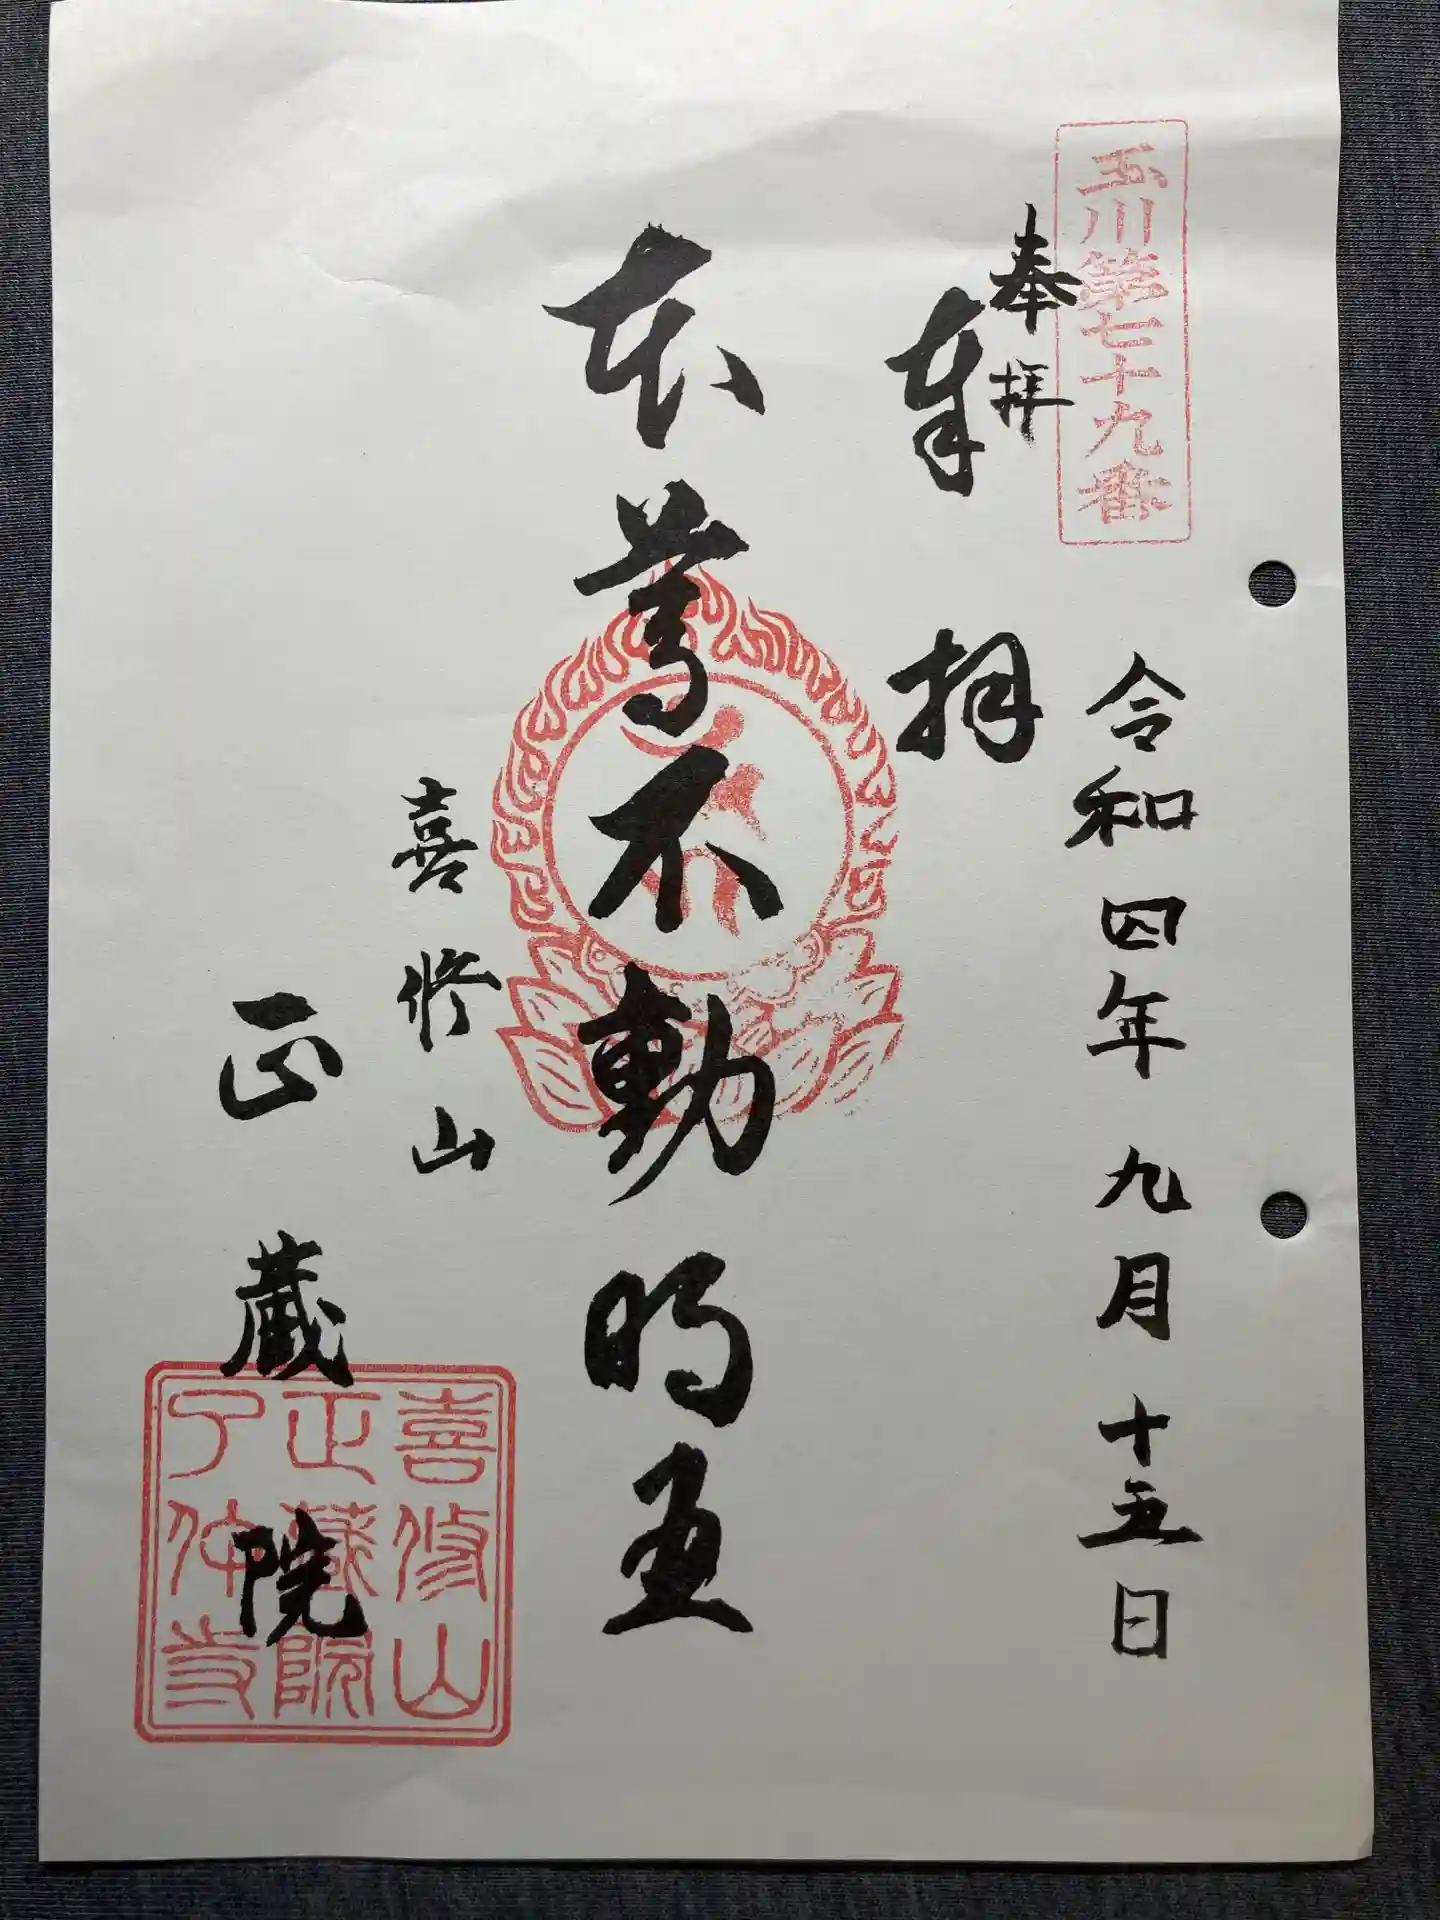 玉川第七十九番
令和四年九月十五日
奉拝
奉拝
本尊不動明王
喜修山
正蔵院
喜修山
正蔵院